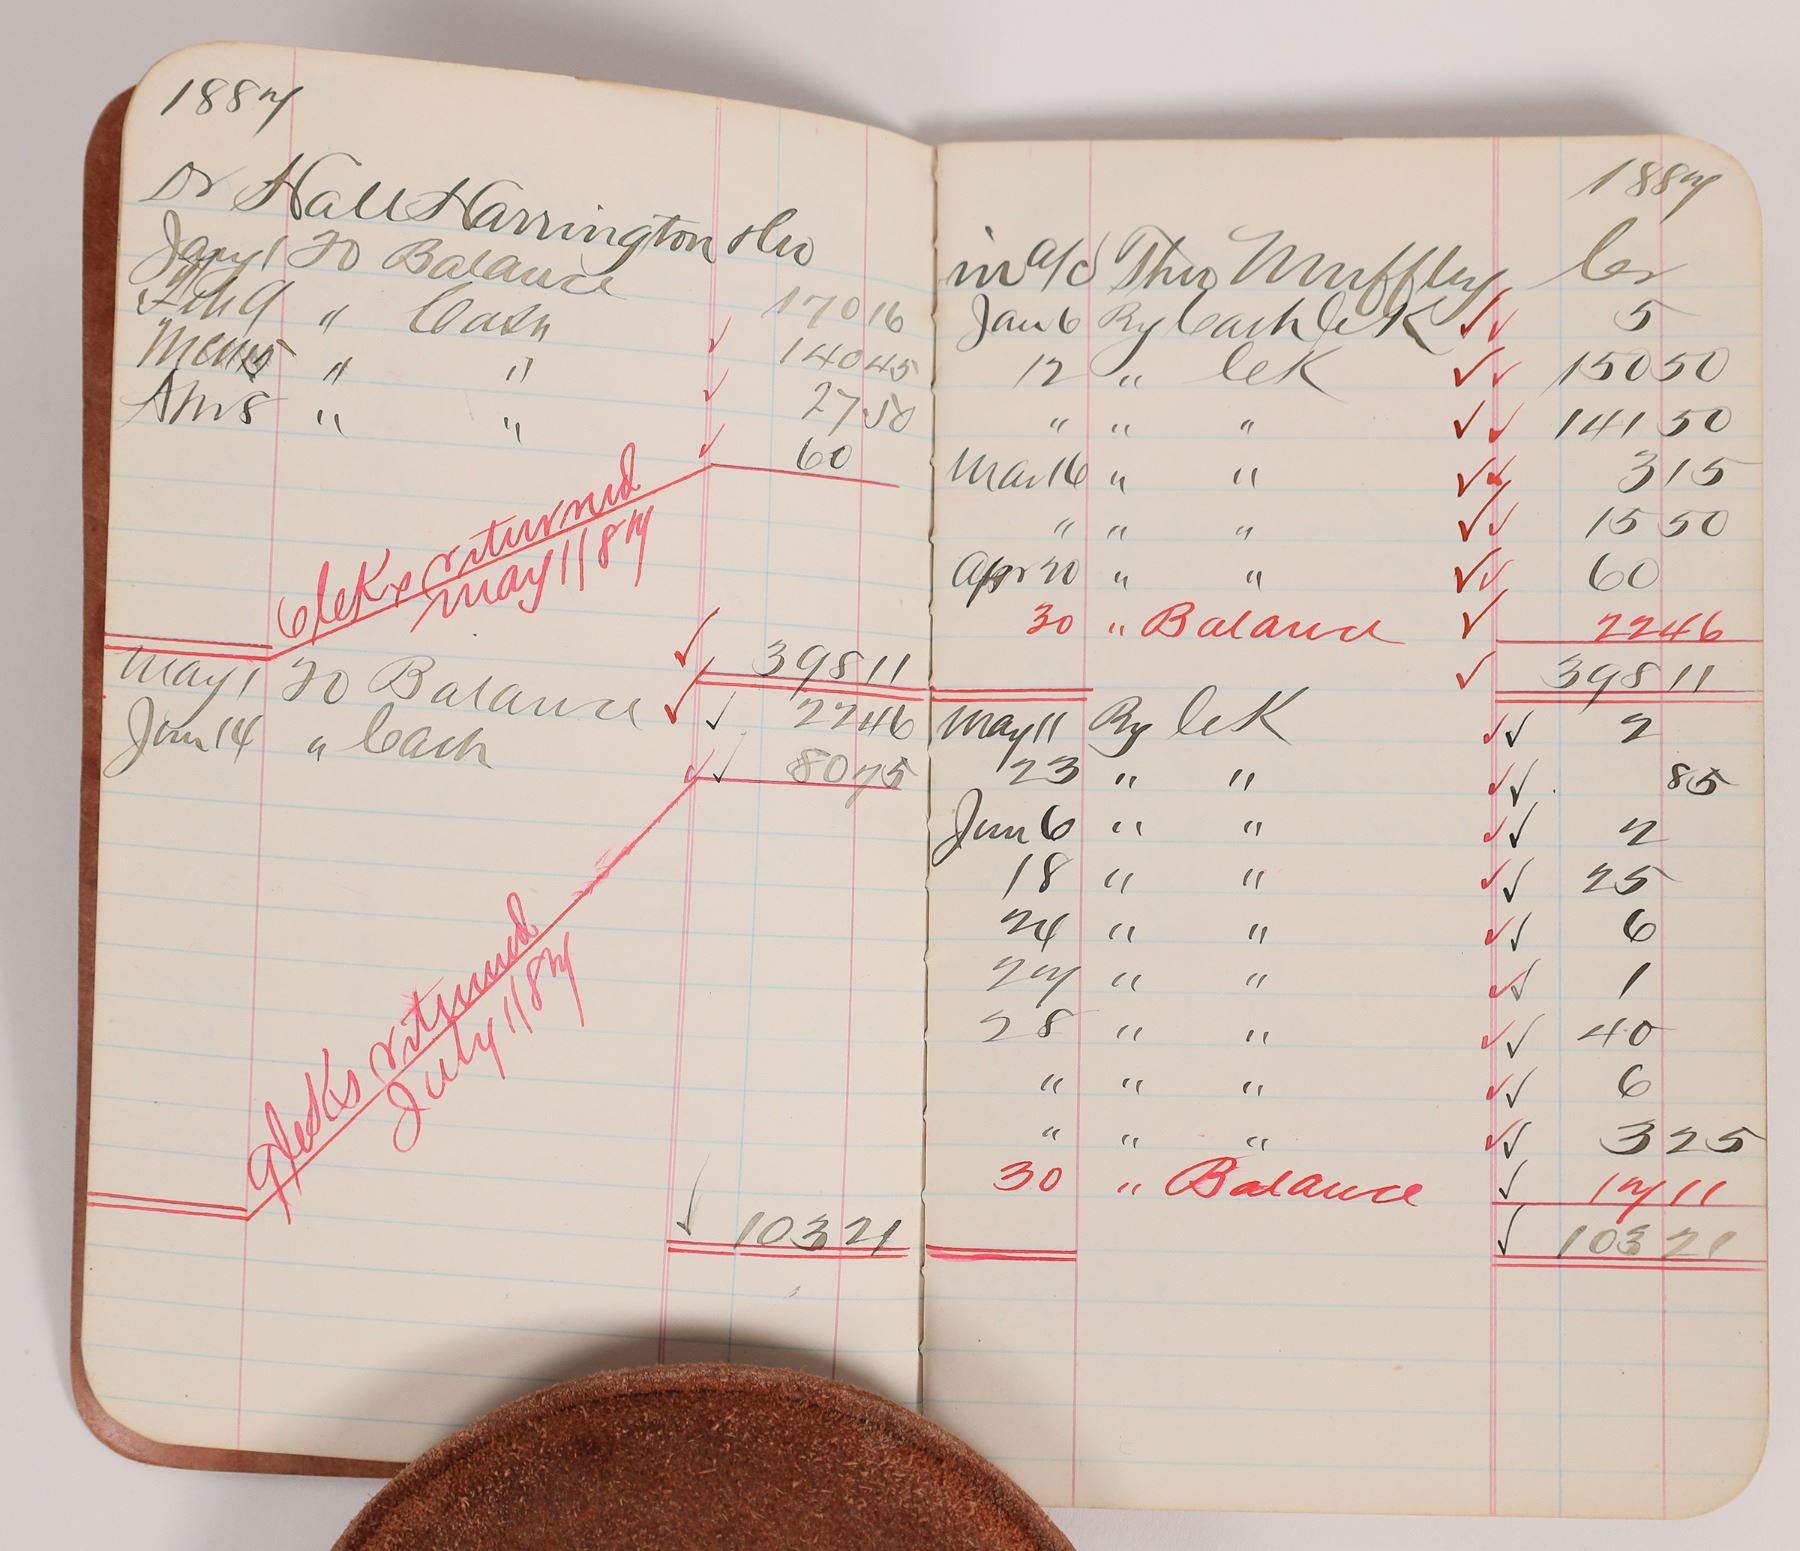 1887
Dr Hall Harrington & Co
Jany 1 To Balance 170 16
Feb 9 " Cash 140 45
" " 27 50
Apr 8 " " 60
6 Cks returned
May 1 1887
398 11
May 1 To Balance 22 46
Jun 14 " Cash 80 75
9 Cks returned
July 1 1887
103 21
1887
in a/c Theo Muffley Cr
Jan 6 By Cash Ck 5
12 " Ck 150 50
" " " 141 50
Mar 16 " " 3 15
" " " 15 50
Apr 20 " " 60
30 " Balance 22 46
398 11
May 11 By Ck 2
23 " " 85
Jun 6 " " 2
18 " " 25
24 " " 6
27 " " 1
28 " " 40
" " " 6
" " " 3 25
30 " Balance 17 11
103 21